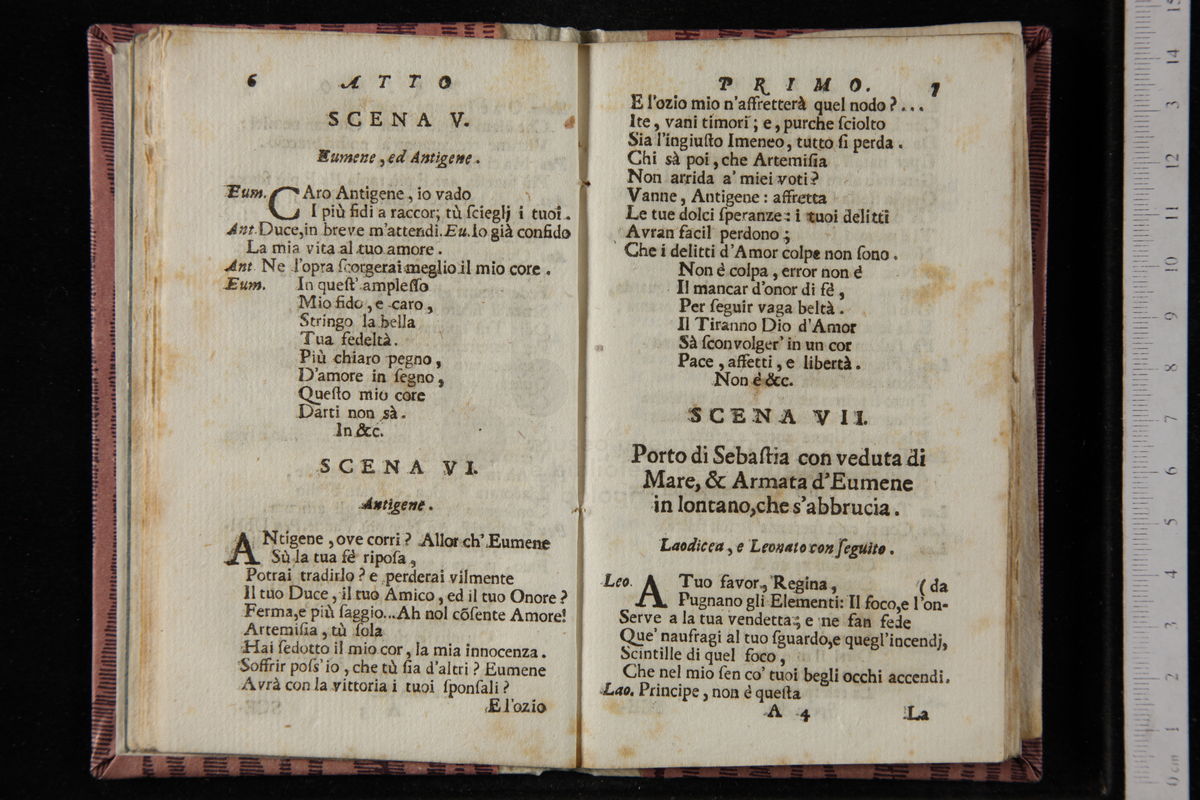 6 ATTO
SCENA V.
Eumene, ed Antigene.
Eum. CAro Antigene, io vado
I più fidi a raccor; tù ſcieglj i tuoi.
Ant. Duce, in breve m'attendi. Eu. Io già confido
La mia vita al tuo amore.
Ant Ne l'opra ſcorgerai meglio il mio core.
Eum. In queſt' ampleſſo
Mio fido, e caro,
Stringo la bella
Tua fedeltà.
Più chiaro pegno,
D'amore in ſegno,
Queſto mio core
Darti non sà.
In &c.
SCENA VI.
Antigene.
ANtigene, ove corri? Allor ch' Eumene
Sù la tua fè ripoſa,
Potrai tradirlo? e perderai vilmente
Il tuo Duce, il tuo Amico, ed il tuo Onore?
Ferma, e più ſaggio... Ah nol cõſente Amore!
Artemiſia, tù ſola
Hai ſedotto il mio cor, la mia innocenza.
Soffrir poſs'io, che tù ſia d'altri? Eumene
Avrà con la vittoria i tuoi ſponſali?
E l'ozio
PRIMO. 7
E l'ozio mio n'affretterà quel nodo?...
Ite, vani timori; e, purche ſciolto
Sia l'ingiuſto Imeneo, tutto ſi perda.
Chi sà poi, che Artemiſia
Non arrida a' miei voti?
Vanne, Antigene: affretta
Le tue dolci ſperanze: i tuoi delitti
Avran facil perdono;
Che i delitti d'Amor colpe non ſono.
Non è colpa, error non é
Il mancar d'onor di fè,
Per ſeguir vaga beltà.
Il Tiranno Dio d'Amor
Sà ſconvolger' in un cor
Pace, affetti, e libertà.
Non è &c.
SCENA VII.
Porto di Sebaſtia con veduta di
Mare, & Armata d'Eumene
in lontano, che s'abbrucia.
Laodicea, e Leonato con ſeguito.
Leo. A Tuo favor, Regina, (da
Pugnano gli Elementi: Il foco, e l'on-
Serve a la tua vendetta; e ne fan fede
Que' naufragi al tuo ſguardo, e quegl'incendj,
Scintille di quel foco,
Che nel mio ſen co' tuoi begli occhi accendi.
Lao. Principe, non é queſta
A 4 La
15
14
3
12
11
10
9
8
7
6
5
4
3
2
1
0 cm